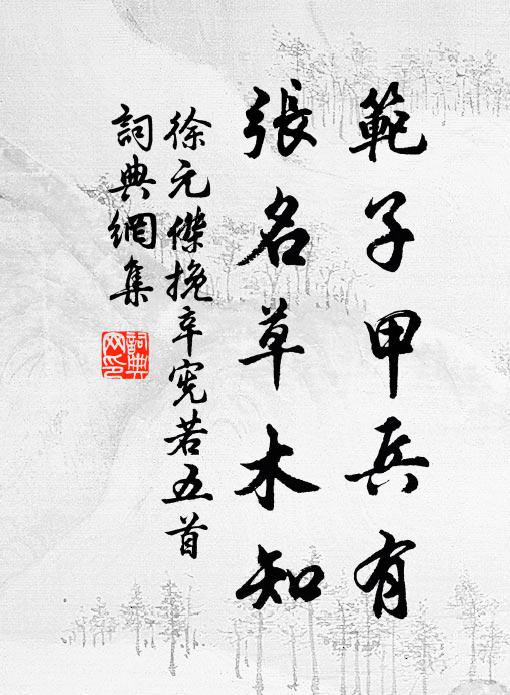 範子甲兵有
張名草木知
徐元傑挽辛宪若五首
詞典網集
詞典網印